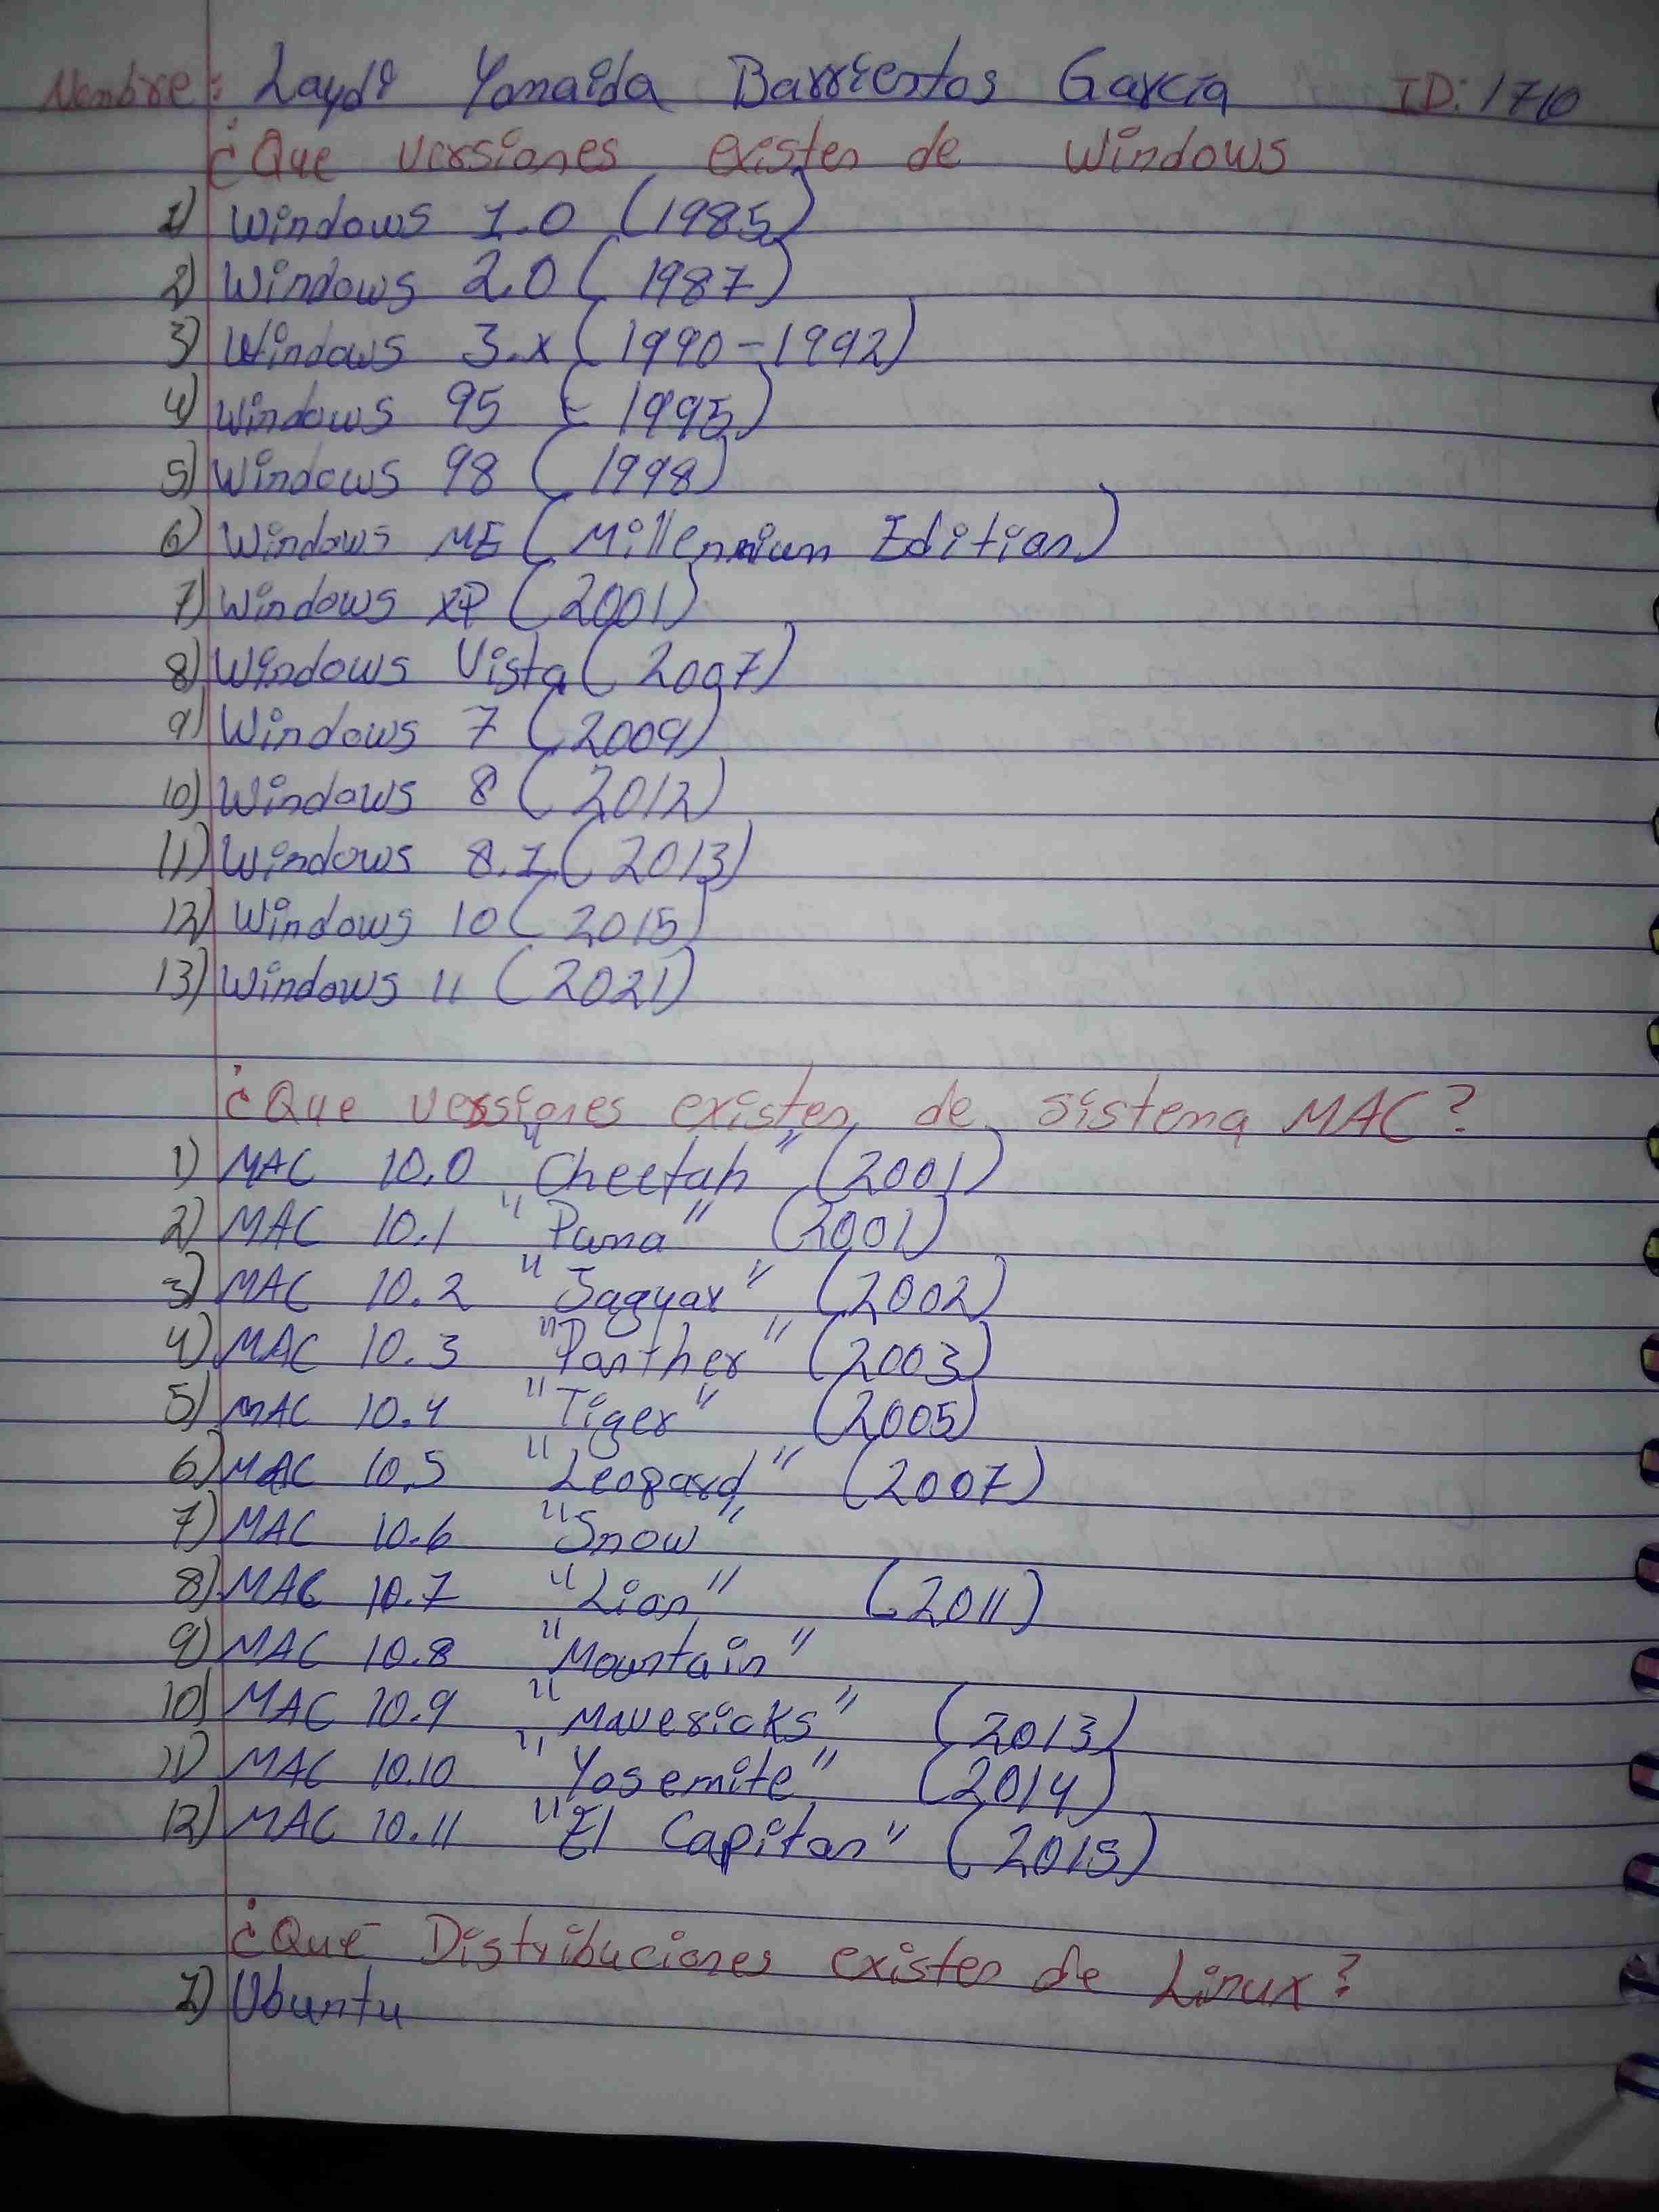 Nombre: Laydi Yomaida Barrientos García ID: 1710
¿Que versiones existen de Windows
1) Windows 1.0 (1985)
2) Windows 2.0 (1987)
3) Windows 3.x (1990-1992)
4) Windows 95 (1995)
5) Windows 98 (1998)
6) Windows ME (Millennium Edition)
7) Windows XP (2001)
8) Windows Vista (2007)
9) Windows 7 (2009)
10) Windows 8 (2012)
11) Windows 8.1 (2013)
12) Windows 10 (2015)
13) Windows 11 (2021)
¿Que versiones existen de sistema MAC?
1) MAC 10.0 "Cheetah" (2001)
2) MAC 10.1 "Puma" (2001)
3) MAC 10.2 "Jaguar" (2002)
4) MAC 10.3 "Panther" (2003)
5) MAC 10.4 "Tiger" (2005)
6) MAC 10.5 "Leopard" (2007)
7) MAC 10.6 "Snow"
8) MAC 10.7 "Lion" (2011)
9) MAC 10.8 "Mountain"
10) MAC 10.9 "Mavericks" (2013)
11) MAC 10.10 "Yosemite" (2014)
12) MAC 10.11 "El Capitan" (2015)
¿Qué Distribuciones existen de Linux?
1) Ubuntu